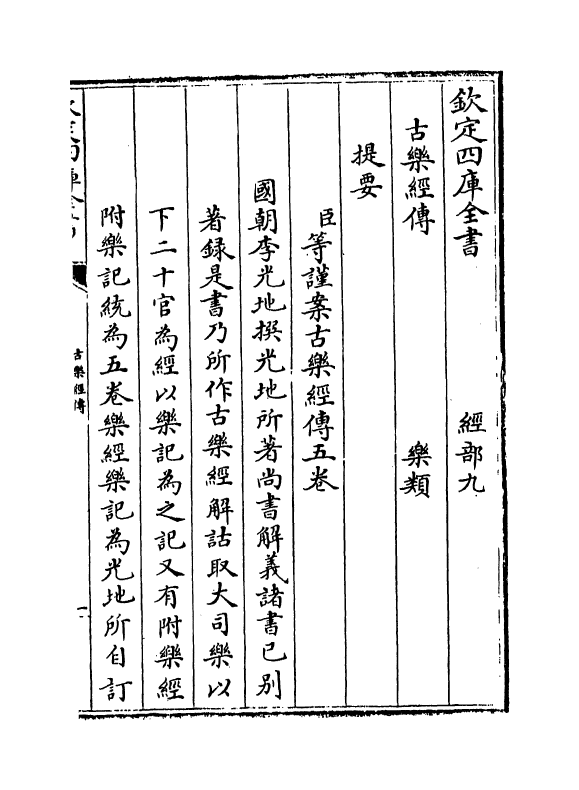 欽定四庫全書　經部九
古樂經傳　樂類
提要
臣等謹案古樂經傳五卷
國朝李光地撰光地所著尚書解義諸書已别
著録是書乃所作古樂經解詁取大司樂以
下二十官為經以樂記為之記又有附樂經
附樂記統為五卷樂經樂記為光地所自訂
古樂經傳
一